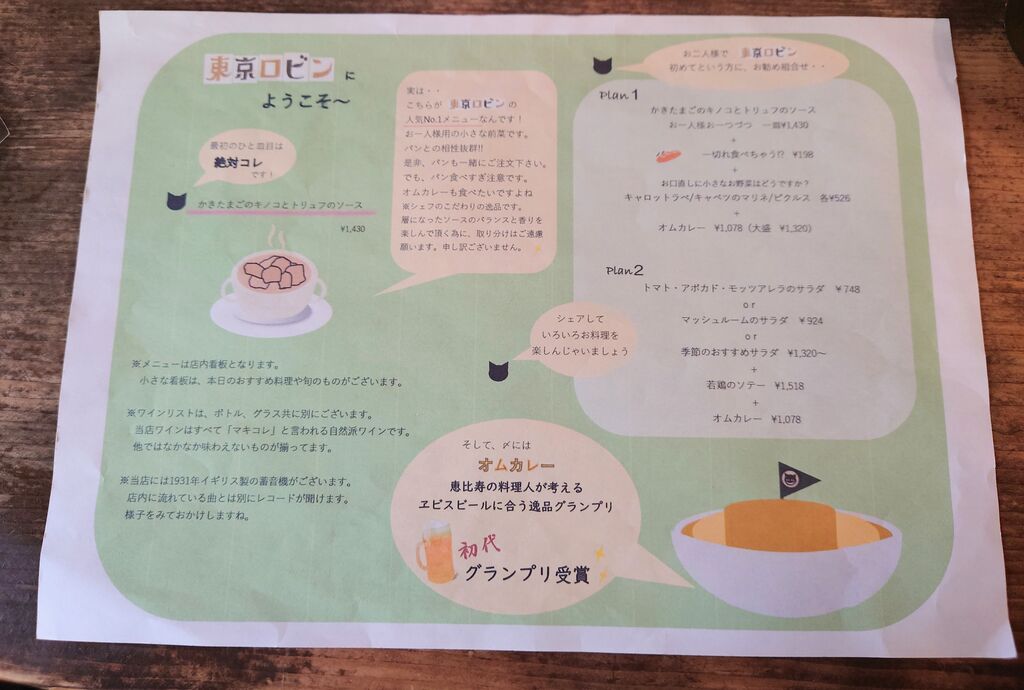 東京ロビンに
ようこそ〜
最初のひと皿目は
絶対コレ
です！
かきたまごのキノコとトリュフのソース
¥1,430
※メニューは店内看板となります。
小さな看板は、本日のおすすめ料理や旬のものがございます。
※ワインリストは、ボトル、グラス共に別にございます。
当店ワインはすべて「マキコレ」と言われる自然派ワインです。
他ではなかなか味わえないものが揃ってます。
※当店には1931年イギリス製の蓄音機がございます。
店内に流れている曲とは別にレコードが聞けます。
様子をみておかけしますね。
実は・・
こちらが 東京ロビンの
人気No.1メニューなんです！
お一人様用の小さな前菜です。
パンとの相性抜群!!
是非、パンも一緒にご注文下さい。
でも、パン食べすぎ注意です。
オムカレーも食べたいですよね
※シェフのこだわりの逸品です。
層になったソースのバランスと香りを
楽しんで頂く為に、取り分けはご遠慮
願います。申し訳ございません。
シェアして
いろいろお料理を
楽しんじゃいましょう
そして、〆には
オムカレー
恵比寿の料理人が考える
ヱビスビールに合う逸品グランプリ
初代
グランプリ受賞
お二人様で 東京ロビン
初めてという方に、お勧め組合せ・・
Plan1
かきたまごのキノコとトリュフのソース
お一人様お一つづつ 一皿¥1,430
+
一切れ食べちゃう!? ¥198
+
お口直しに小さなお野菜はどうですか？
キャロットラペ/キャベツのマリネ/ピクルス 各¥526
+
オムカレー ¥1,078（大盛 ¥1,320）
Plan2
トマト・アボカド・モッツアレラのサラダ ¥748
or
マッシュルームのサラダ ¥924
or
季節のおすすめサラダ ¥1,320〜
+
若鶏のソテー ¥1,518
+
オムカレー ¥1,078